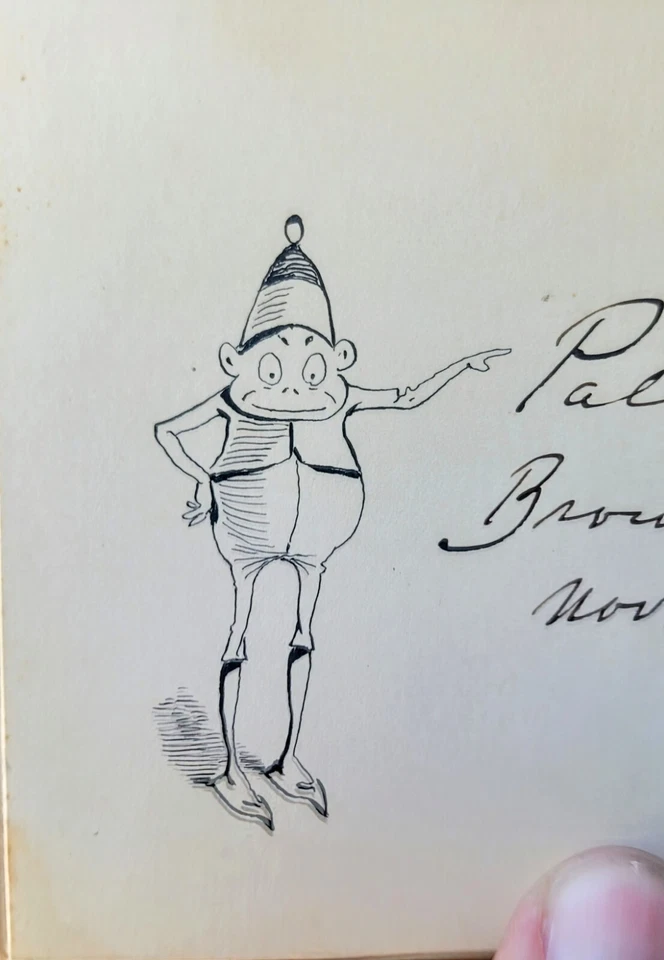 Pal
Brow
Nov